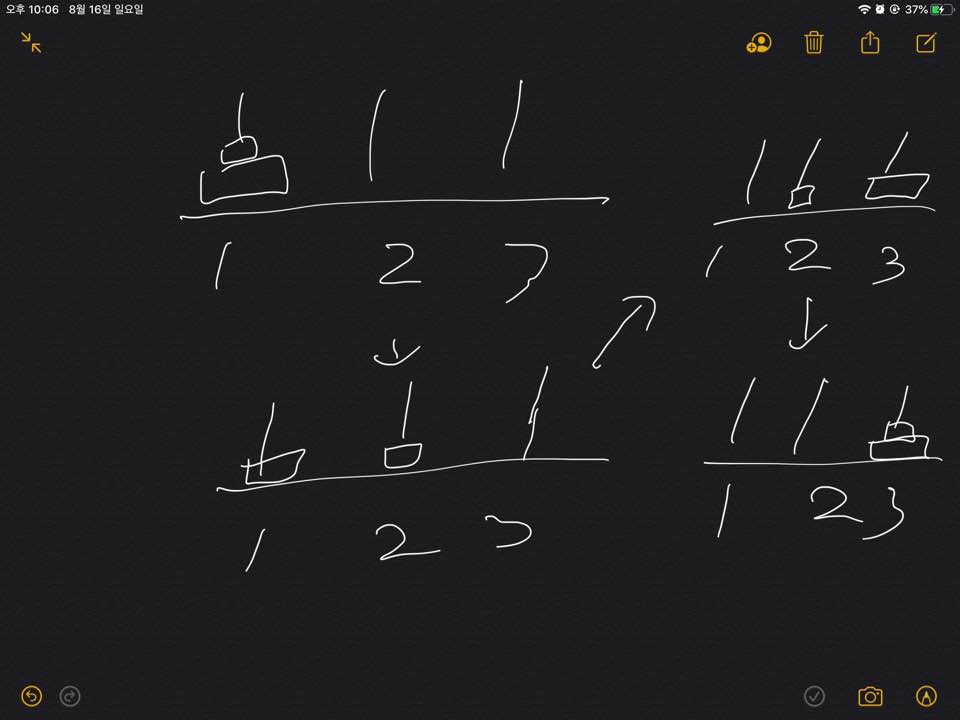 오후 10:06 8월 16일 일요일
37%
1 2 3
1 2 3
1 2 3
1 2 3